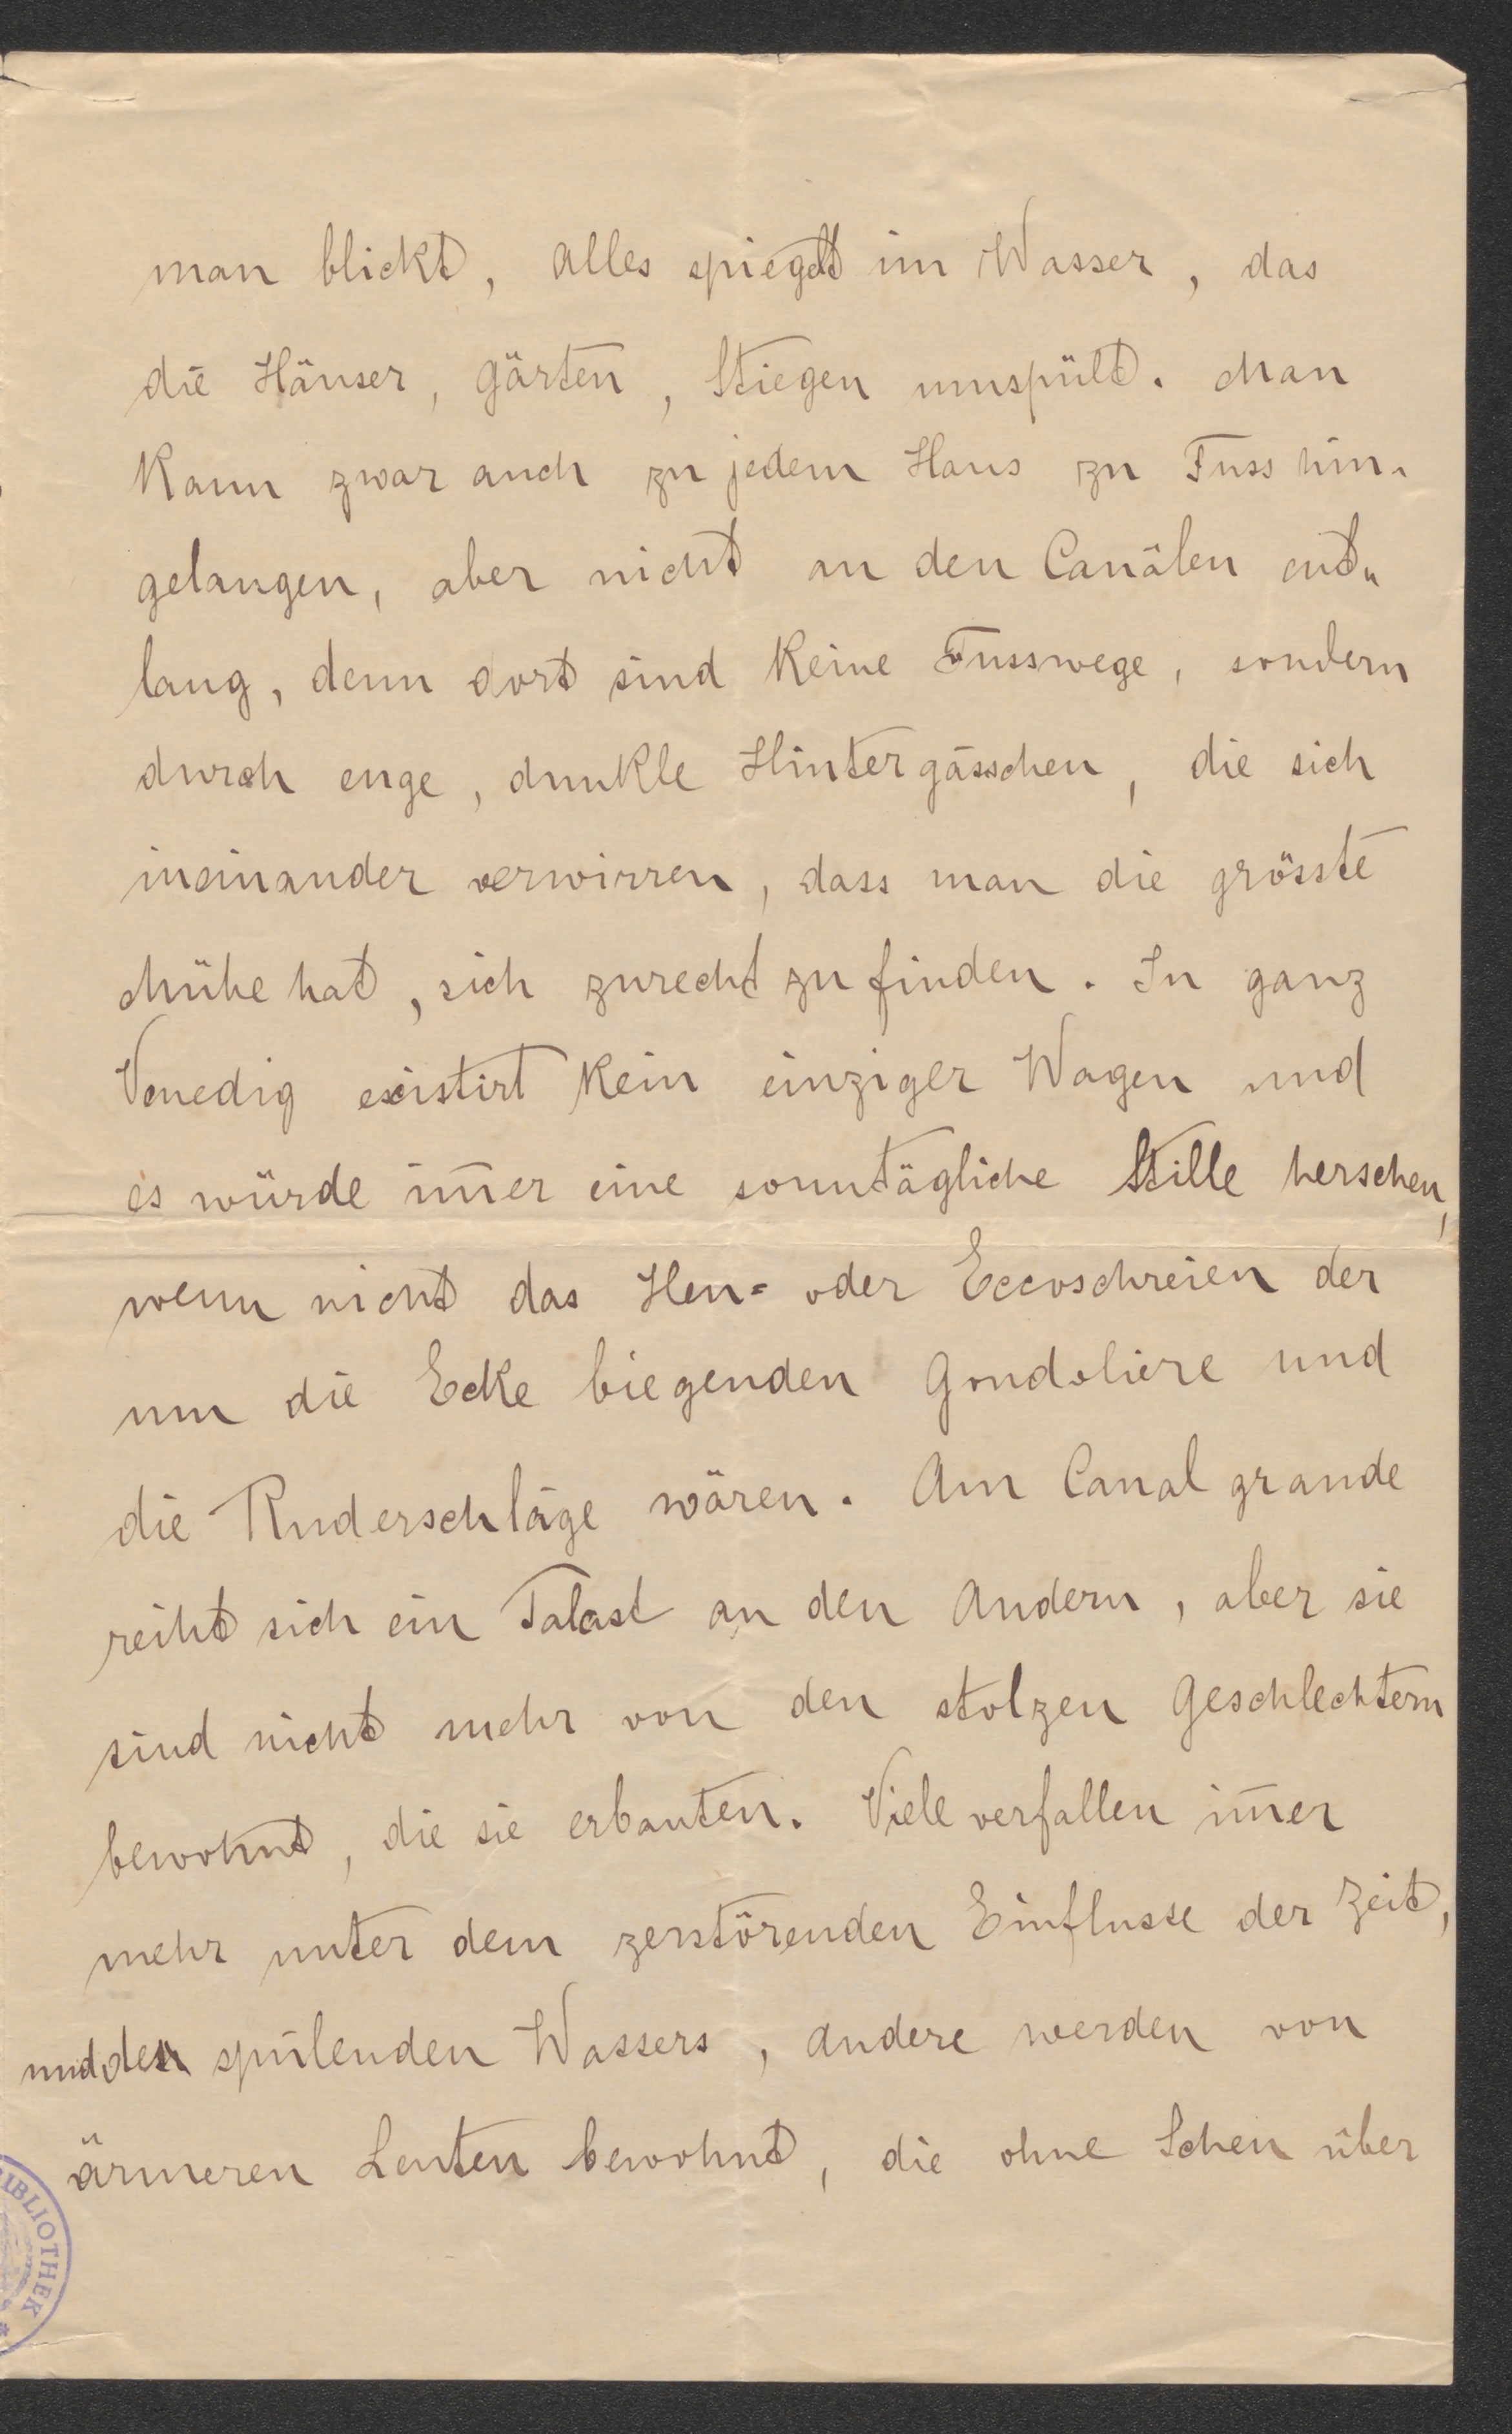 man blickt, alles spiegelt im Wasser, das
die Häuser, Gärten, Stiegen umspült. Man
kann zwar auch zu jedem Haus zu Fuss hin-
gelangen, aber nicht an den Canälen ent-
lang, denn dort sind keine Fusswege, sondern
durch enge, dunkle Hintergässchen, die sich
ineinander verwirren, dass man die grösste
Mühe hat, sich zurecht zu finden. In ganz
Venedig existirt kein einziger Wagen und
es würde im̄er eine sonntägliche Stille herschen,
wenn nicht das Heu= oder Eccoschreien der
um die Ecke biegenden Gondoliere und
die Ruderschläge wären. Am Canal grande
reiht sich ein Palast an den Andern, aber sie
sind nicht mehr von den stolzen Geschlechtern
bewohnt, die sie erbauten. Viele verfallen im̄er
mehr unter dem zerstörenden Einflusse der Zeit,
und des spülenden Wassers, andere werden von
ärmeren Leuten bewohnt, die ohne Scheu über
BIBLIOTHEK